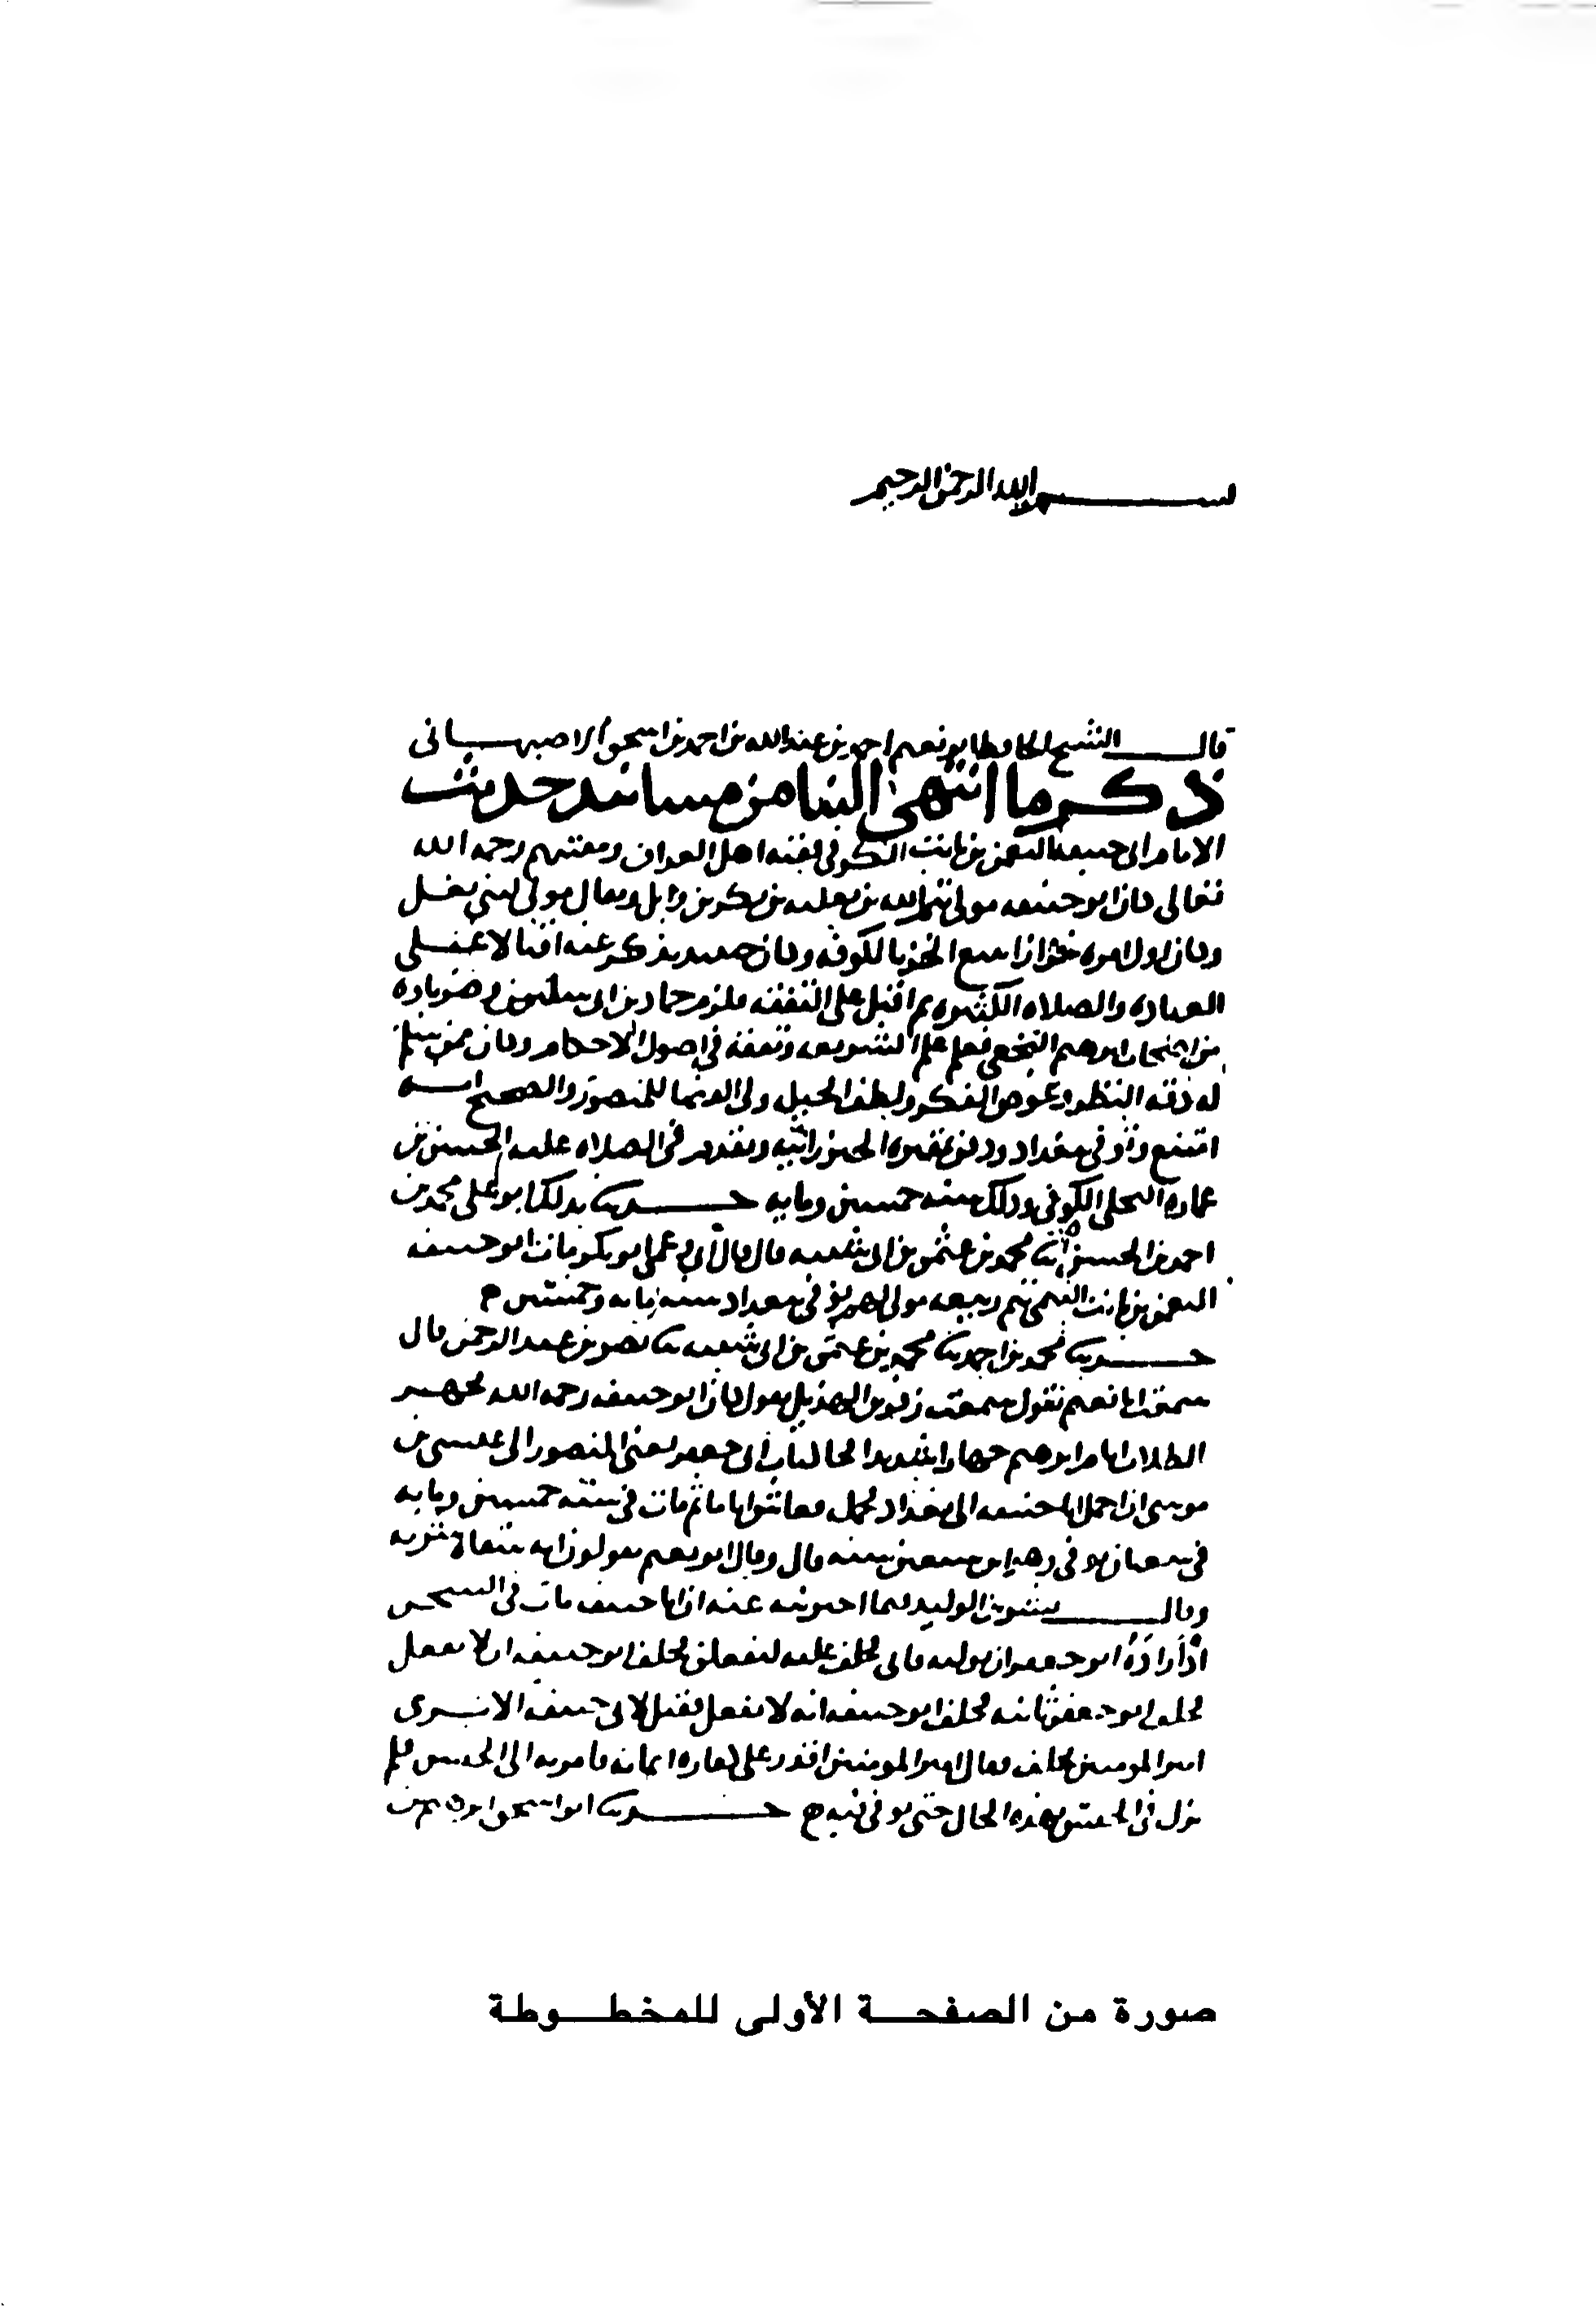 بسم الله الرحمن الرحيم
قال الشيخ الحافظ ابو نعيم احمد بن عبد الله بن احمد بن اسحق الاصبهاني
ذكر ما انتهى الينا من مسانيد حديث
الامام ابي حنيفة النعمن بن ثابت الكوفي فقيه اهل العراق ومفتيهم رحمه الله
تعالى كان ابو حنيفه مولى تيم الله بن ثعلبه بن بكر بن وايل ويقال مولى لبني
وكان اول امره خزازا يبيع الخز بالكوفه وكان يذكر عنه
العباده والصلاه الكثيره ثم اقبل على التفقه فلزم حماد بن ابي سليمن
من اصحاب ابرهيم النخعي فعلم علم الشريعه وتفقه في اصول الاحكام وكان ممن سلم
له دقه النظر وغوص الفكر ولطف الحيل ولي القضا للمنصور والصحيح انه
امتنع وتوفي ببغداد ودفن بمقبره الخيزرانيه وتقدم في الصلاه عليه الحسن بن
عماره البجلي الكوفي وذلك سنه خمسين ومايه حدثنا بذلك ابو علي محمد بن
احمد بن الحسن ثنا محمد بن عثمن بن ابي شيبه قال قال ابي وعمي ابو بكر مات ابو حنيفه
النعمن بن ثابت التيمي تيم ربيعه مولى لهم توفي ببغداد سنه مايه وخمسين
حدثنا محمد بن احمد ثنا محمد بن عثمن بن ابي شيبه ثنا نصر بن عبد الرحمن قال
سمعت ابا نعيم يقول سمعت زفر بن الهذيل يقول كان ابو حنيفه رحمه الله يجهر
الكلام ايام ابرهيم جهارا شديدا كتاب ابي جعفر يعني المنصور الى عيسى بن
موسى ان احمل ابا حنيفه الى بغداد فحمل فعاش اياما ثم مات في سنه خمسين ومايه
في شعبان توفي وهو ابن سبعين سنه قال وقال ابو نعيم يقولون انه سقاه شربه
وقال بشر بن الوليد فيما اخبرت عنه ان ابا حنيفه مات في السجن
اراده ابو جعفر ان يوليه فابى فحلف عليه ليفعلن فحلف ابو حنيفه ان لا يفعل
فحلف ابو جعفر ثانيه فحلف ابو حنيفه انه لا يفعل فقيل لابي حنيفه الا ترى
امير المومنين يحلف فقال امير المومنين اقدر على كفاره ايمانه فامر به الى الحبس فلم
يزل في الحبس بهذه الحال حتى توفي فيه حدثنا ابو اسحق ابرهيم بن
صورة من الصفحة الأولى للمخطوطة